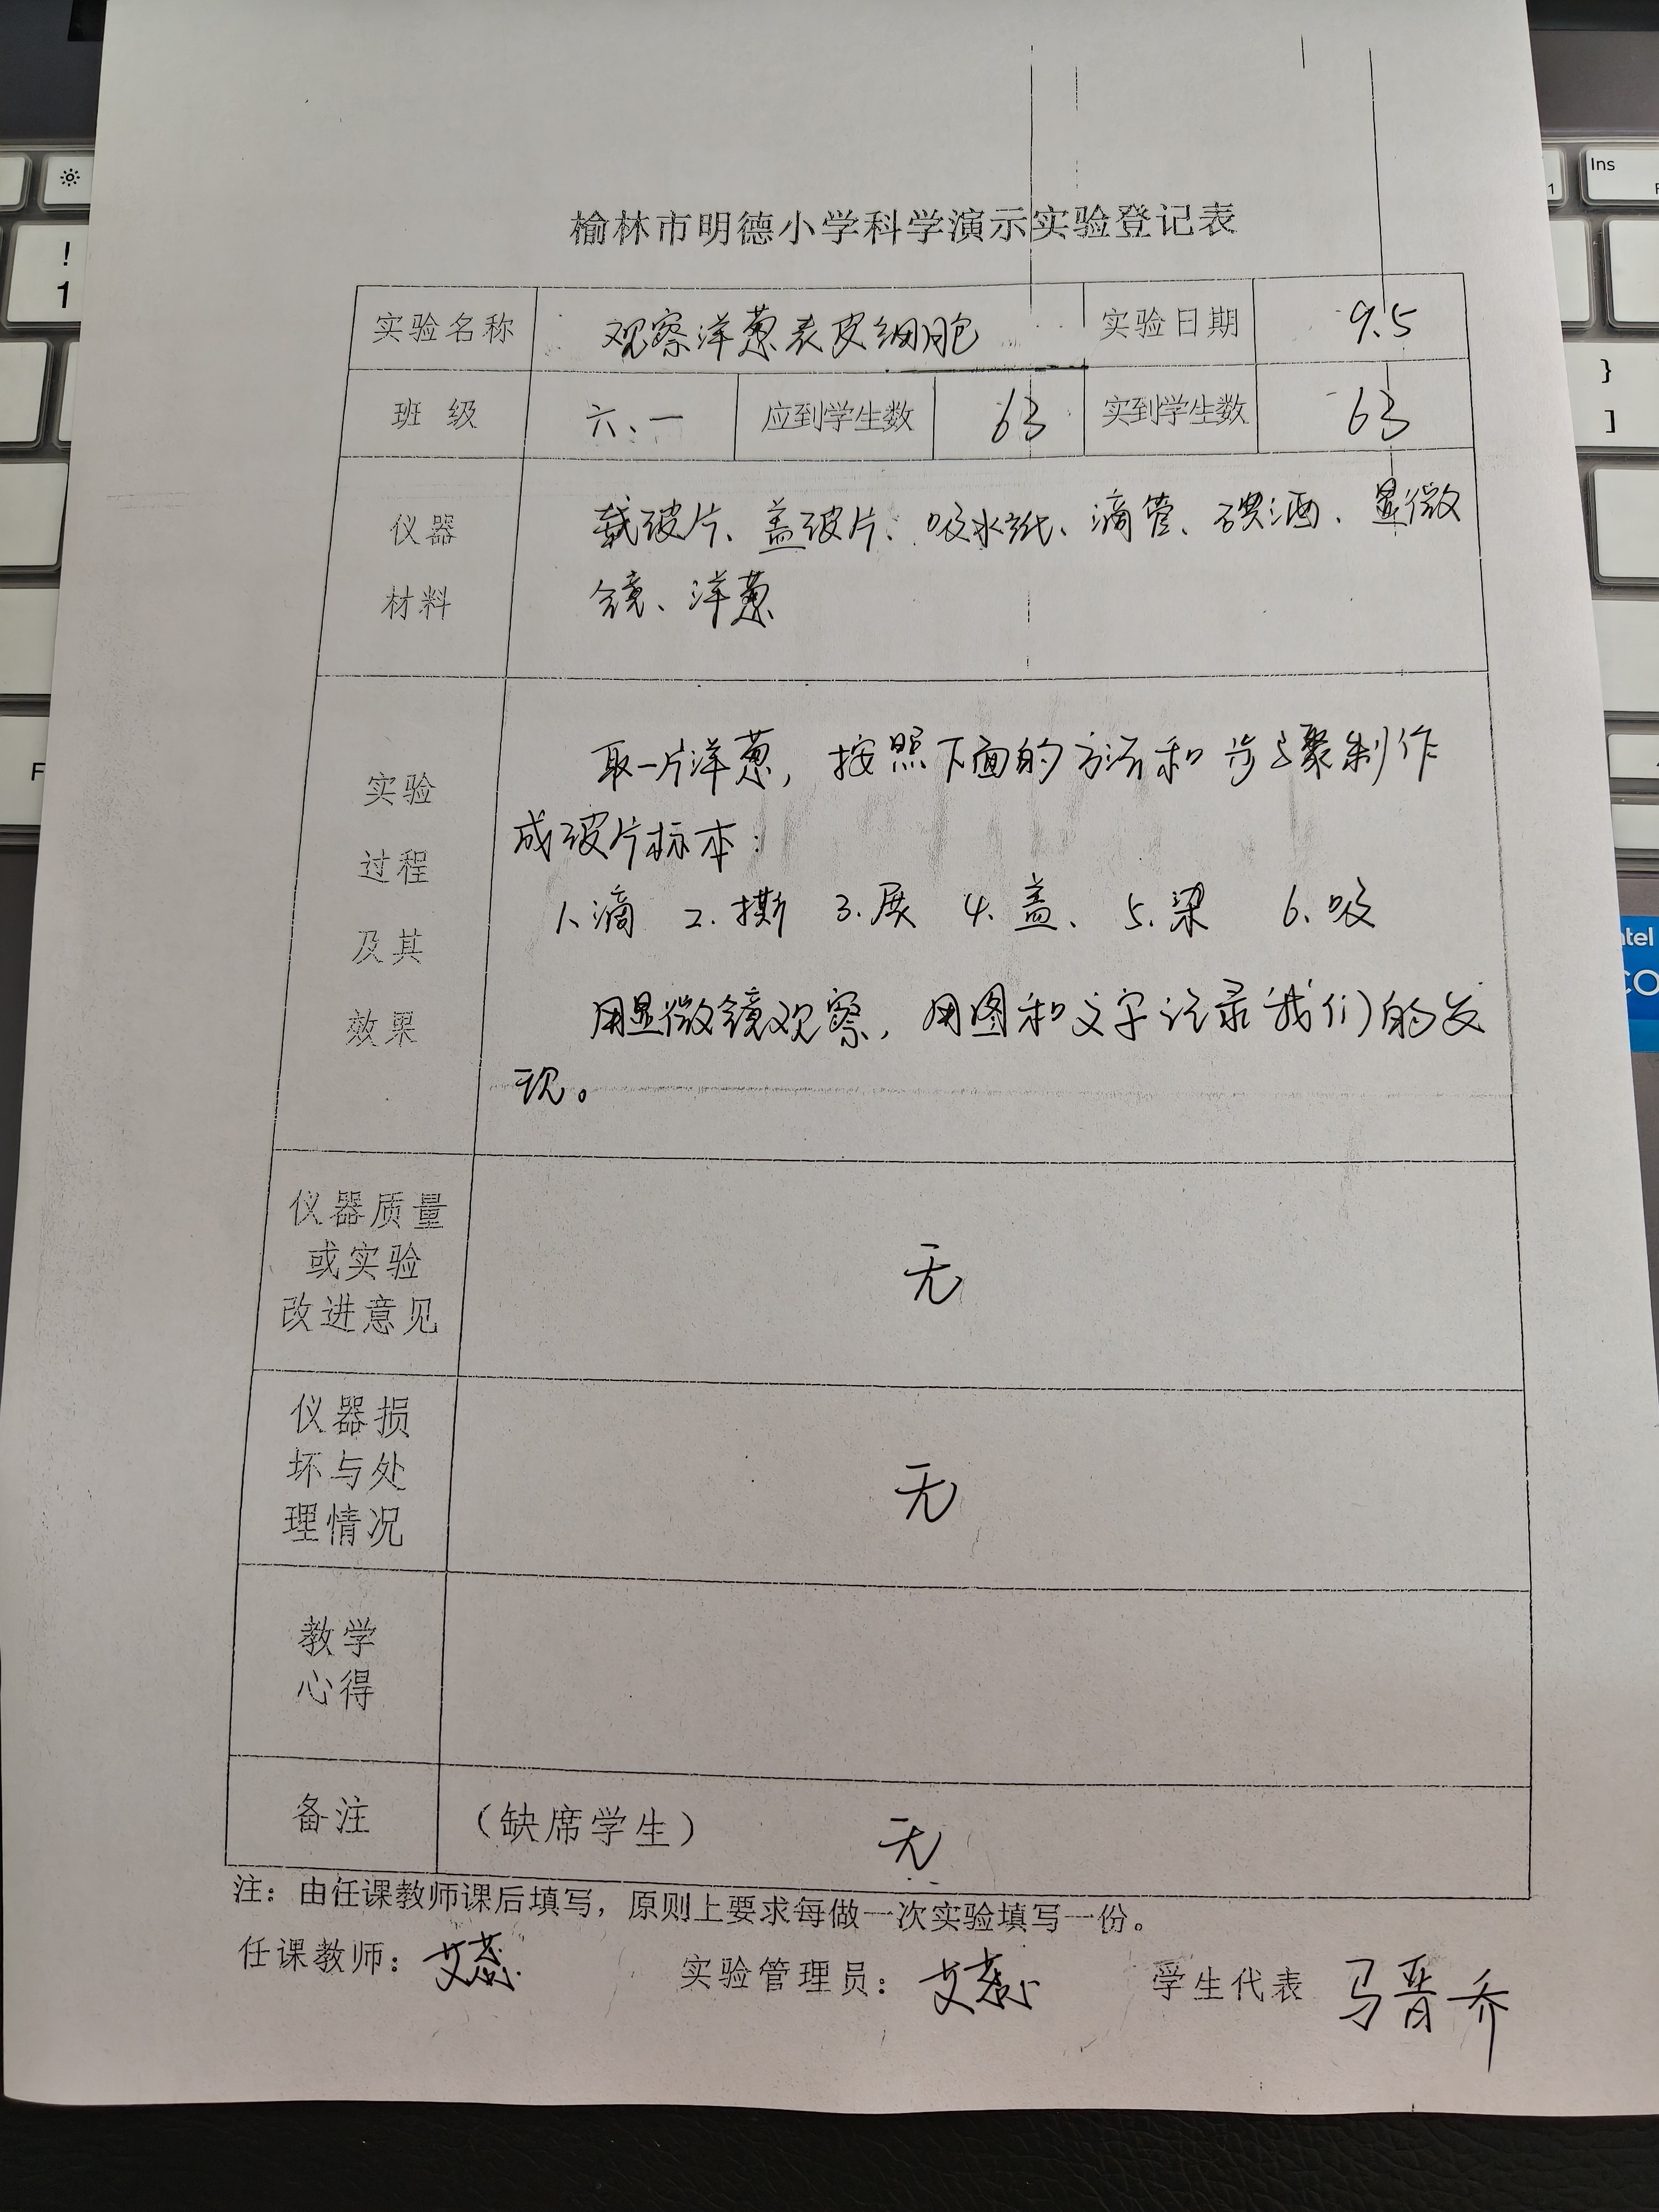 榆林市明德小学科学演示实验登记表
实验名称 观察洋葱表皮细胞 实验日期 9.5
班 级 六、一 应到学生数 63 实到学生数 63
仪器 载玻片、盖玻片、吸水纸、滴管、碘酒、显微
材料 镜、洋葱
取一片洋葱，按照下面的方法和步骤制作
实验
成玻片标本：
过程
1.滴 2.撕 3.展 4.盖、 5.染 6.吸
及其
用显微镜观察，用图和文字记录我们的发
效果
现。
仪器质量
或实验 无
改进意见
仪器损
坏与处 无
理情况
教学
心得
备注 （缺席学生） 无
注：由任课教师课后填写，原则上要求每做一次实验填写一份。
任课教师：艾蕊 实验管理员：艾蕊 学生代表 马晋乔
Ins
!
1
1
}
]
F
F
intel
CO